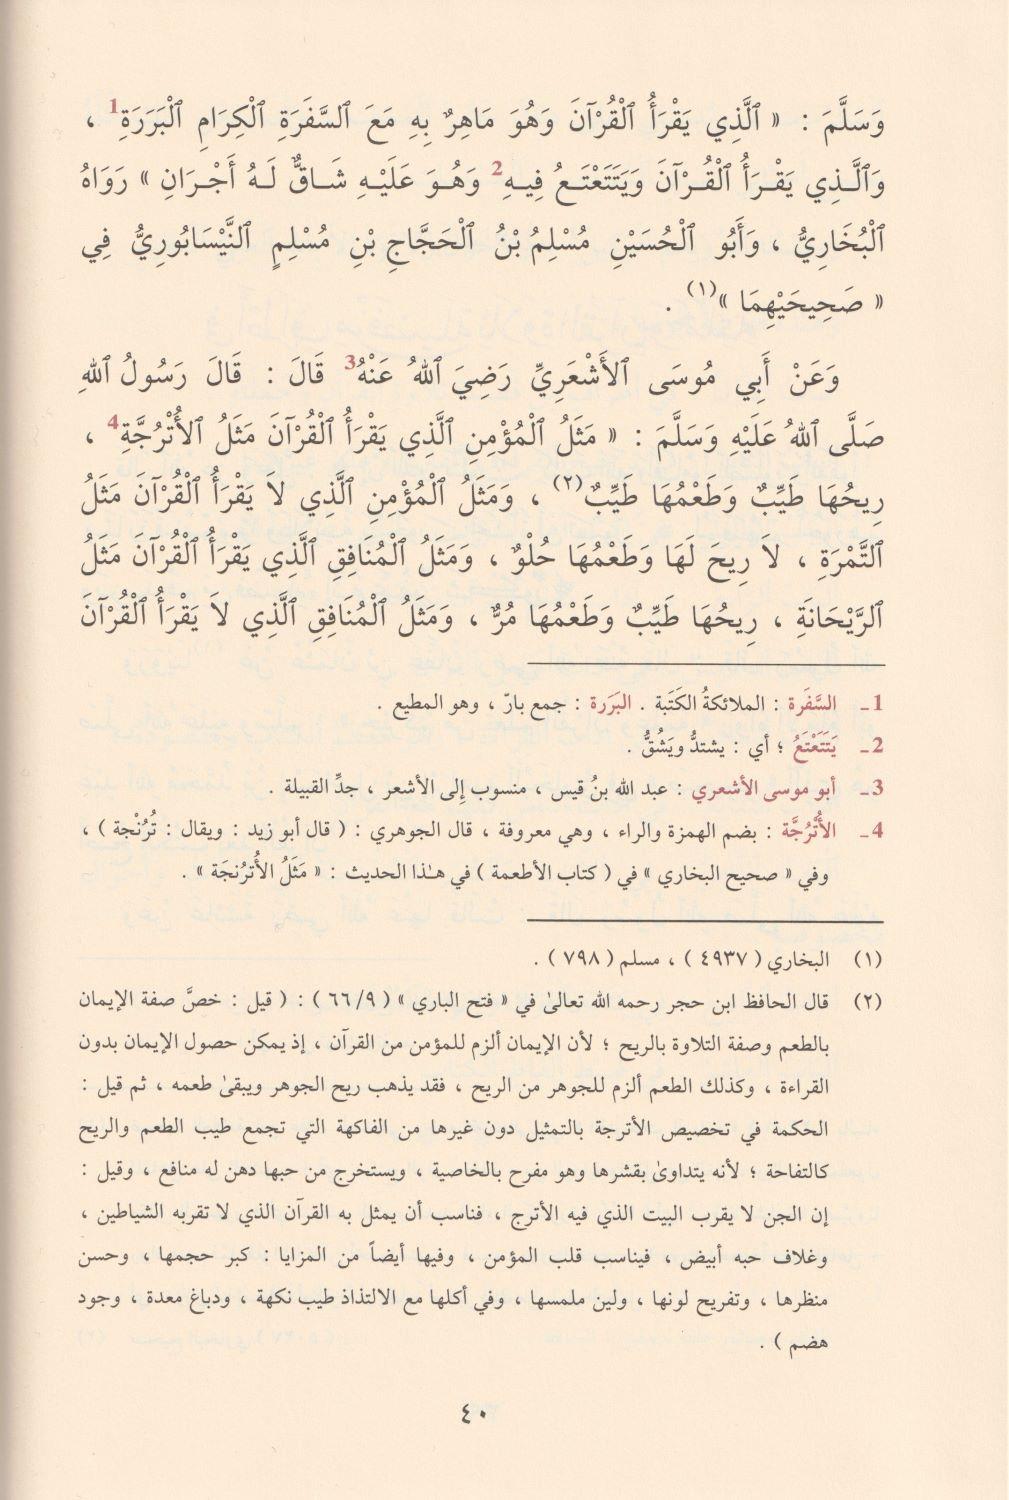 وَسَلَّمَ : « ٱلَّذِي يَقْرَأُ ٱلْقُرْآنَ وَهُوَ مَاهِرٌ بِهِ مَعَ ٱلسَّفَرَةِ ٱلْكِرَامِ ٱلْبَرَرَةِ1 ،
وَٱلَّـذِي يَقْـرَأُ ٱلْقُـرْآنَ وَيَتَتَعْتَـعُ فِيـهِ2 وَهُـوَ عَلَيْـهِ شَـاقٌّ لَـهُ أَجْـرَانِ » رَوَاهُ
ٱلْبُخَارِيُّ ، وَأَبُو ٱلْحُسَيْنِ مُسْلِمُ بْنُ ٱلْحَجَّاجِ بْنِ مُسْلِمٍ ٱلنَّيْسَابُورِيُّ فِي
« صَحِيحَيْهِمَا »(١) .
وَعَنْ أَبِي مُوسَى ٱلأَشْعَرِيِّ رَضِيَ ٱللهُ عَنْهُ3 قَالَ : قَالَ رَسُولُ ٱللهِ
صَلَّى ٱللهُ عَلَيْهِ وَسَلَّمَ : « مَثَلُ ٱلْمُؤْمِنِ ٱلَّذِي يَقْرَأُ ٱلْقُرْآنَ مَثَلُ ٱلأُتْرُجَّةِ4 ،
رِيحُهَا طَيِّبٌ وَطَعْمُهَا طَيِّبٌ(٢) ، وَمَثَلُ ٱلْمُؤْمِنِ ٱلَّذِي لاَ يَقْرَأُ ٱلْقُرْآنَ مَثَلُ
ٱلتَّمْرَةِ ، لاَ رِيحَ لَهَا وَطَعْمُهَا حُلْوٌ ، وَمَثَلُ ٱلْمُنَافِقِ ٱلَّذِي يَقْرَأُ ٱلْقُرْآنَ مَثَلُ
ٱلرَّيْحَانَةِ ، رِيحُهَا طَيِّبٌ وَطَعْمُهَا مُرٌّ ، وَمَثَلُ ٱلْمُنَافِقِ ٱلَّذِي لاَ يَقْرَأُ ٱلْقُرْآنَ
1ـ السَّفَرة : الملائكةُ الكَتَبة . البَرَرة : جمع بارّ ، وهو المطيع .
2ـ يَتَتَعْتَعُ ؛ أي : يشتدُّ ويَشُقُّ .
3ـ أبو موسى الأشعري : عبد الله بنُ قيس ، منسوب إِلى الأشعر ، جدِّ القبيلة .
4ـ الأُتْرُجَّة : بضم الهمزة والراء ، وهي معروفة ، قال الجوهري : ( قال أبو زيد : ويقال : تُرُنْجة ) ،
وفي « صحيح البخاري » في ( كتاب الأطعمة ) في هـٰذا الحديث : « مَثَلُ الأُترُنجَة » .
(١) البخاري ( ٤٩٣٧ ) ، مسلم ( ٧٩٨ ) .
(٢) قال الحافظ ابن حجر رحمه الله تعالىٰ في « فتح الباري » ( ٦٦/٩ ) : ( قيل : خصَّ صفة الإيمان
بالطعم وصفة التلاوة بالريح ؛ لأن الإيمان ألزم للمؤمن من القرآن ، إذ يمكن حصول الإيمان بدون
القراءة ، وكذلك الطعم ألزم للجوهر من الريح ، فقد يذهب ريح الجوهر ويبقىٰ طعمه ، ثم قيل :
الحكمة في تخصيص الأترجة بالتمثيل دون غيرها من الفاكهة التي تجمع طيب الطعم والريح
كالتفاحة ؛ لأنه يتداوىٰ بقشرها وهو مفرح بالخاصية ، ويستخرج من حبها دهن له منافع ، وقيل :
إن الجن لا يقرب البيت الذي فيه الأترج ، فناسب أن يمثل به القرآن الذي لا تقربه الشياطين ،
وغلاف حبه أبيض ، فيناسب قلب المؤمن ، وفيها أيضاً من المزايا : كبر حجمها ، وحسن
منظرها ، وتفريح لونها ، ولين ملمسها ، وفي أكلها مع الالتذاذ طيب نكهة ، ودباغ معدة ، وجود
هضم ) .
٤٠